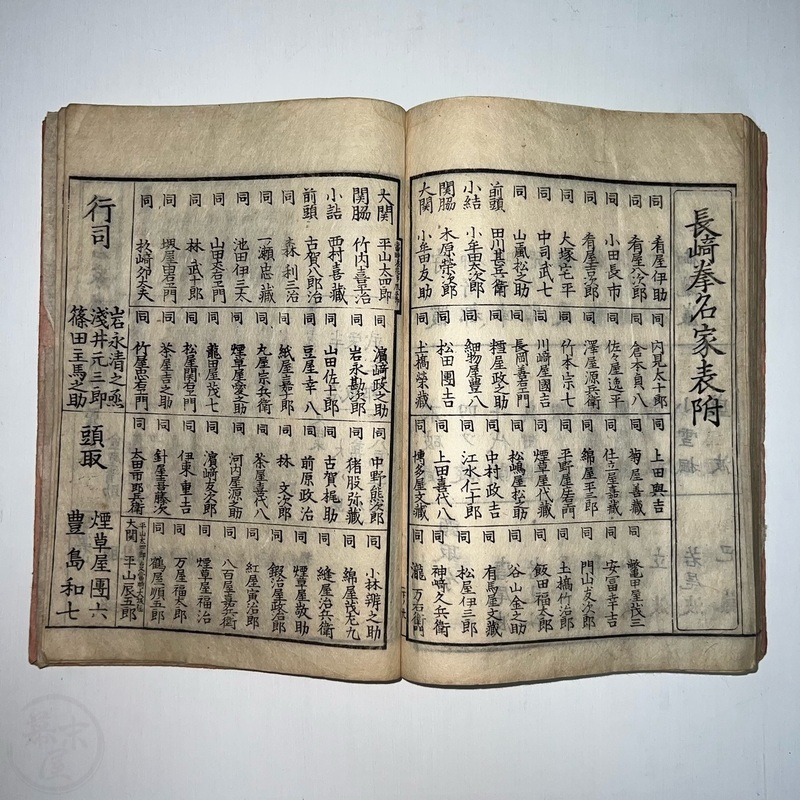 長﨑拳名家表附
同 肴屋伊助
同 肴屋八次郎
同 小田長市
同 肴屋吉次郎
同 大塚宅平
同 中司武七
同 山風松之助
前頭 田川甚兵衛
小結 小牟田太次郎
関脇 木原榮次郎
大関 小牟田友助
同 内見太十郎
同 倉本貞八
同 佐々屋遠平
同 澤屋源兵衛
同 竹本宗七
同 川﨑屋國吉
同 長岡善右門
同 糀屋政之助
同 細物屋豊八
同 松田團吉
同 土橋榮藏
同 上田與吉
同 菊屋善藏
同 仕立屋嘉藏
同 綿屋平三郎
同 平野屋左衛門
同 煙草屋代藏
同 松嶋屋松助
同 中村政吉
同 江水仁十郎
同 上田喜代八
同 博多屋文藏
同 鼈甲屋茂三
同 安冨幸吉
同 門山友次郎
同 土橋竹治郎
同 飯田福太郎
同 谷山金之助
同 有馬屋文藏
同 松屋伊三郎
同 神﨑久兵衛
同 瀧 万右衛門
大関 平山太四郎
関脇 竹内喜平治
小結 西村喜藏
前頭 古賀八郎治
同 森利三治
同 一瀬忠藏
同 池田伊三太
同 山田太右衛門
同 林武十郎
同 堺屋岩右衛門
同
同 濵﨑政之助
同 岩永勘次郎
同 山田佐十郎
同 豆屋幸八
同 紙屋嘉十郎
同 丸屋宗兵衛
同 煙草屋愛之助
同 龍田屋茂七
同 松屋関右門
同 茶屋吉之助
同 竹屋忠右門
同 中野熊次郎
同 猪股弥藏
同 古賀梶助
同 前原政治
同 林文次郎
同 茶屋喜代八
同 河内屋源之助
同 濵﨑友次郎
同 伊東重吉
同 針屋吾藤次
同 太田市郎兵衛
同 小林辨之助
同 綿屋茂左九
同 縫屋治兵衛
同 煙草屋敬助
同 鍛治屋政治郎
同 紅屋寅治郎
同 八百屋嘉兵衛
同 煙草屋福治
同 万屋福太郎
同 鶴屋順五郎
大関 平山辰五郎
行司
岩永清之丞
淺井元三郎
篠田玉馬之助
頭取
煙草屋團六
豊島和七